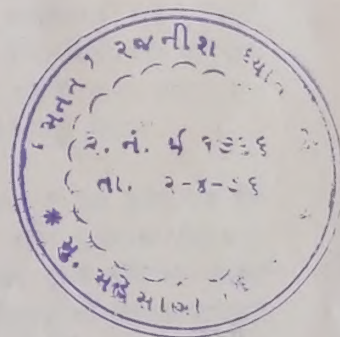 'મનન' રજનીશ ધ્યાન
ર. નં. ઈ ૧૯૬૬
તા. ૨-૪-૮૬
* મુ. મહેસાણા